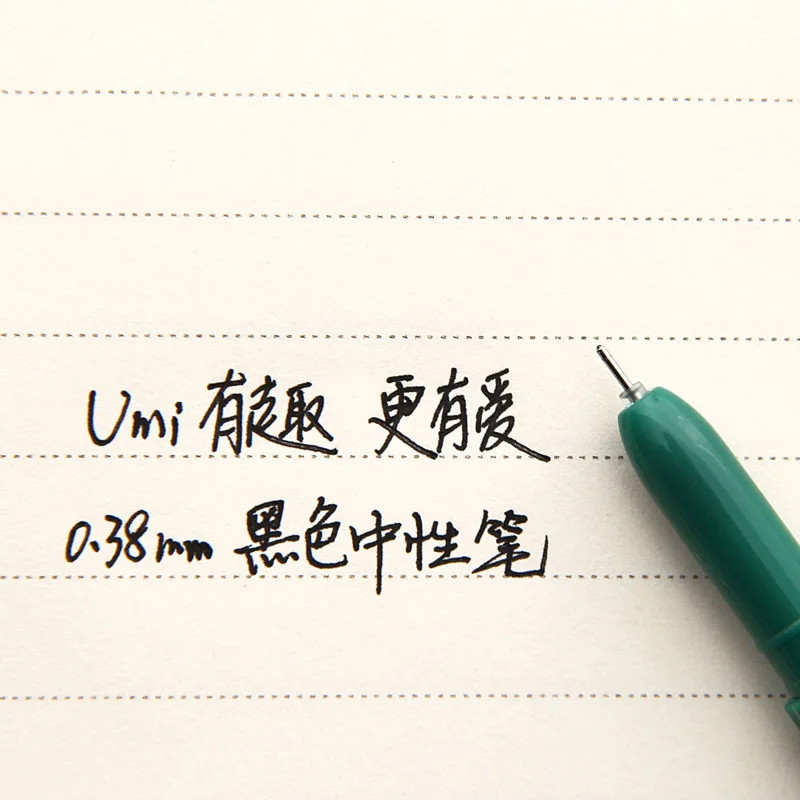 Umi 有趣 更有爱
0.38mm 黑色中性笔